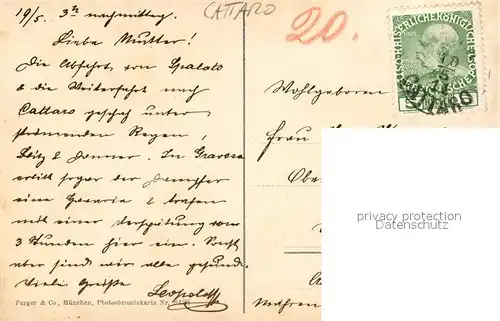 19/5. 3h nachmittag.
CATTARO
20.
Liebe Mutter!
Die Abfahrt von Spalato
& die Weiterfahrt nach
Cattaro geschah unter
strömenden Regen,
Blitz & Donner. In Gravosa
erlitt sogar der Dampfer
eine Havarie & trafen
mit einer Verspätung von
3 Stunden hier ein. Sonst
aber sind wir alle gesund.
Viele Grüße
Leopold
Purger & Co., München, Photochromiekarte Nr.
Wohlgeboren
Frau
Obe
Mähren
KAISERLICHE KÖNIGLICHE
CATTARO
privacy protection
Datenschutz